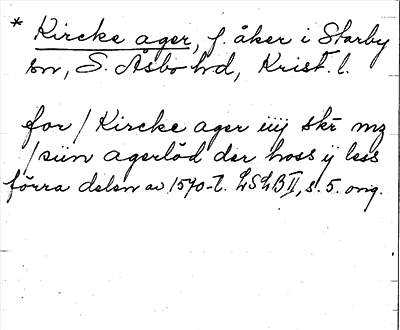 * Kircke ager, f. åker i Starby
sn, S. Åsbo hd, Krist. l.
for / Kircke ager iiij skr mz
/ siin agerlöd der hoss ij less
förra delen av 1570-t. LSLB II, s. 5. orig.